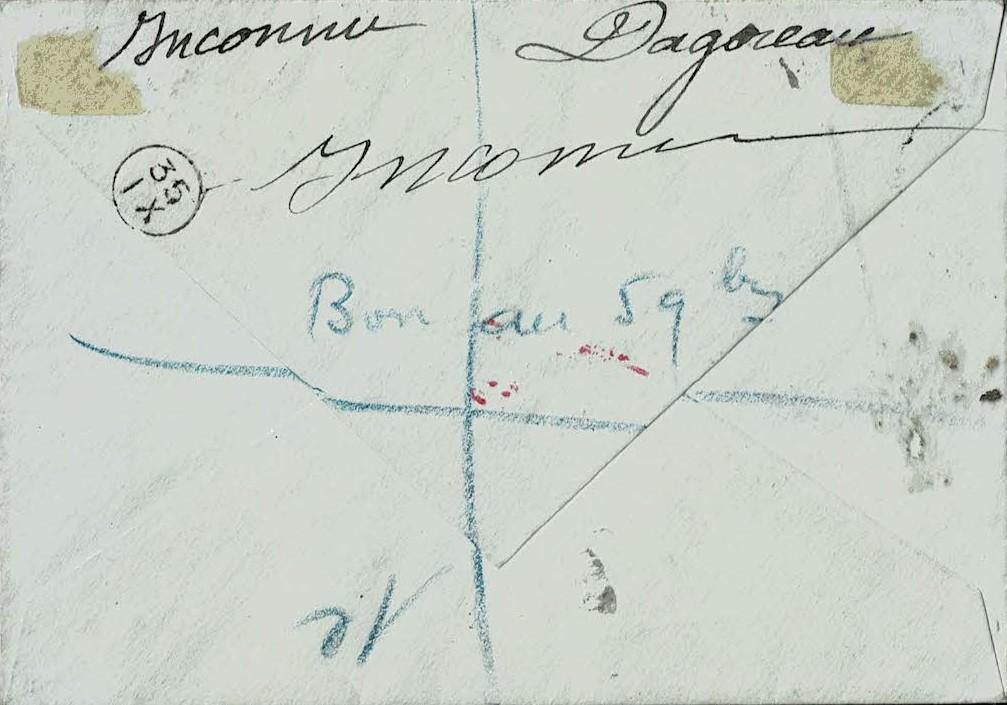 Inconnu Dagoreau
35
IX
Inconnu
Bon au 59 bis